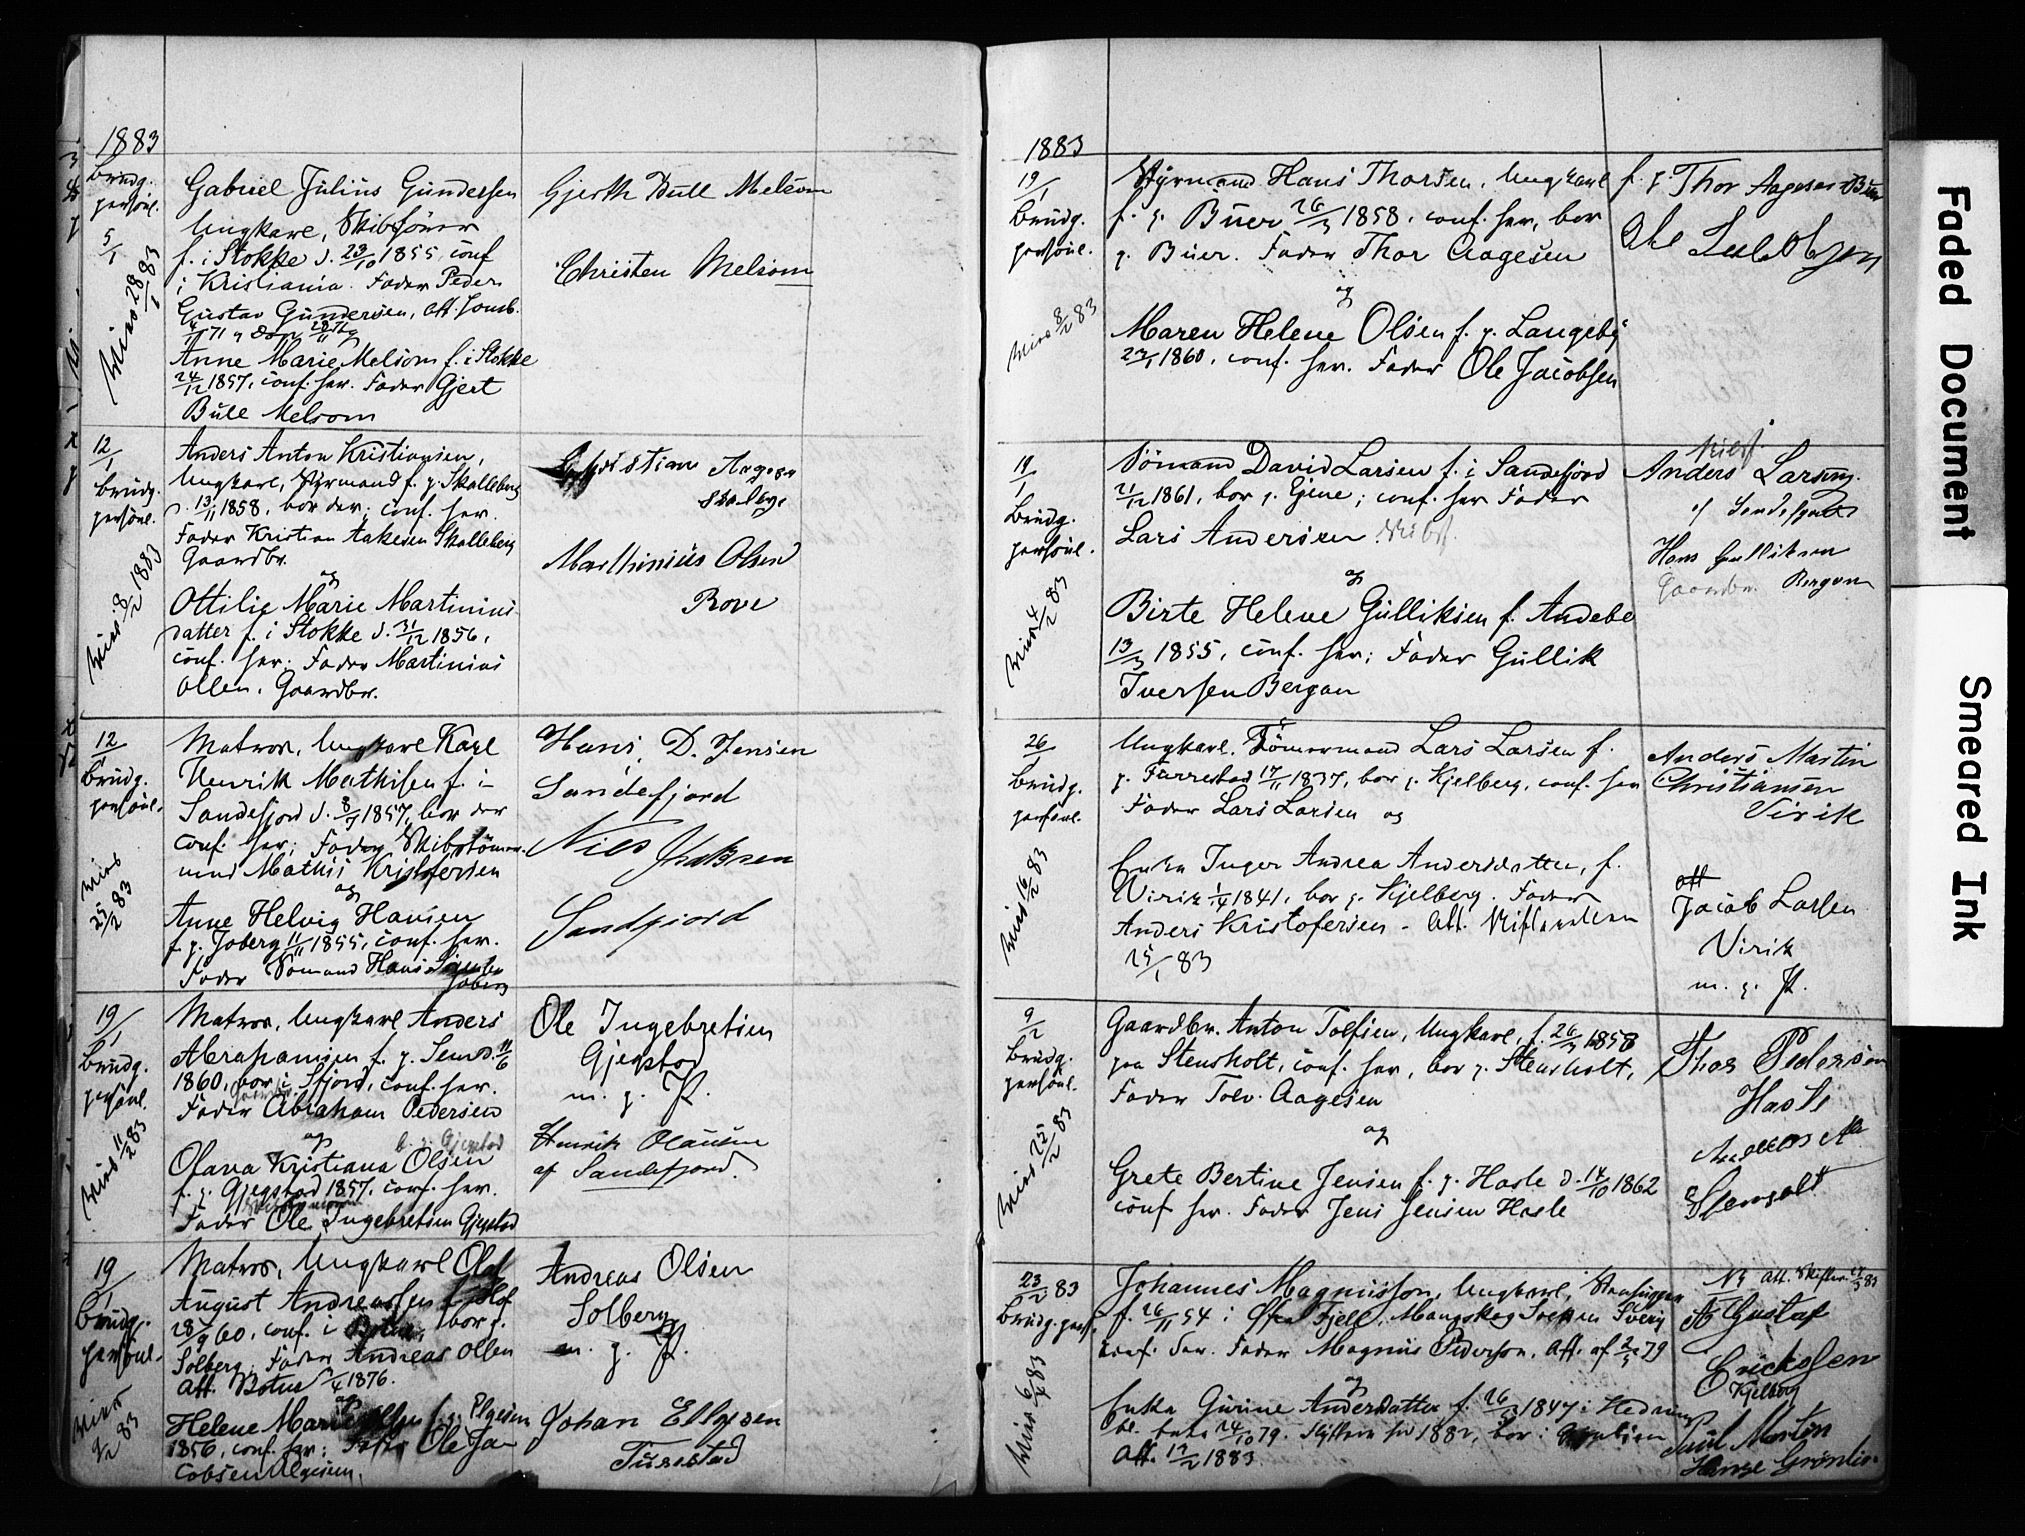 1883
Brudg.
persönl.
5/1
Viet 28/1 83
Gabriel Julius Gundersen
Ungkarl, Skibsfører
f. i Stokke d. 23/10 1855, conf
i Kristiania. Fader Peder
Gustav Gundersen, Att.
Anne Marie Melsom f. i Stokke
24/12 1857, conf. her. Fader Gjert
Bull Melsom
Gjerth Bull Melsom
Christen Melsom
12/1
Brudg.
persönl.
8/2 1883
Anders Anton Kristiansen,
Ungkarl, Styrmand f. p. Skalleberg
d. 13/11 1858, bor der; conf. her.
Fader Kristian Aakesen Skalleberg
Gaardbr.
og
Ottilie Marie Martinius-
datter f. i Stokke d. 31/12 1856,
conf. her; Fader Martinius
Olsen, Gaardbr.
Christian Aagesen
Marthinius Olsen
Rove
12/1
Brudg.
persönl.
25/2 83
Matros, Ungkarl Karl
Henrik Mathisen f. i
Sandefjord d. 8/7 1857, bor der
conf. her; Fader Skibstömer-
mand Mathis Kristofersen
og
Anne Helvig Hansen
f. p. Joberg 11/11 1855, conf. her.
Fader Sömand Hans
Joberg
Hans D. Jensen
Sandefjord
Nils Isaksen
Sandfjord
19/1
Brudg.
persönl.
11/2 83
Matros, Ungkarl Anders
Abrahamsen f. p. Sem d. 11/6
1860, bor i Sfjord, conf. her.
Fader Abraham Pedersen
og
b. p. Gjegstad
Olava Kristiana Olsen
f. p. Gjegstad 1857, conf. her.
Fader Ole Ingebretsen Gjegstad
Ole Ingebretsen
Gjegstad
m. p. P.
Henrik Olausen
af Sandefjord.
19/1
Brudg.
persönl.
83
Matros, Ungkarl Olaf
August Andreassen f. Hof
28/9 60, conf. i Botne, bor p.
Solberg; Fader Andreas Olsen
Att. Botne 1876.
og
Helene Marie Olsen f. p. Elgesem
1856, conf. her; Fader Ole Ja-
cobsen Elgesem.
Andreas Olsen
Solberg
m. p. P.
Johan Ellefsen
Furustad
1883
19/1
Brudg.
persönl.
8/2 83
Styrmand Hans Thorsen, Ungkarl
f. p. Buer 26/3 1858, conf. her, bor
p. Buer. Fader Thor Aagesen
og
Maren Helene Olsen f. p. Langeby
1860, conf. her. Fader Ole Jacobsen
f. p. Thor Aagesen Buer
19/1
Brudg.
persönl.
4/2 83
Sömand David Larsen f. i Sandefjord
21/12 1861, bor p. Gjene; conf. her Fader
Lars Andersen
og
Birte Helene Gulliksen f. Andebo
13/3 1855, conf. her; Fader Gullik
Iversen Bergan
Anders Larsen
af Sandefjord
Hans Gulliksen
Gaardbr. Bergan
26/1
Brudg.
persönl.
16/2 83
Ungkarl, Tömmermand Lars Larsen f.
p. Furrestad 17/11 1837, bor p. Kjelberg, conf. her
Fader Lars Larsen og
Enke Inger Andrea Andersdatter, f.
Virik 1/4 1841, bor p. Kjelberg. Fader
Anders Kristofersen - Att. Skifteretten
25/1 83
Anders Martin
Christiansen
Virik
Jacob Larsen
Virik
m. p. P.
9/2
Brudg.
persönl.
25/2 83
Gaardbr. Anton Tolfsen, Ungkarl, f. 26/3 1858
paa Stensholt, conf. her, bor p. Stensholt,
Fader Tolv. Aagesen
og
Grete Bertine Jensen f. p. Hasle d. 14/10 1862
conf her. Fader Jens Jensen Hasle
Thor Pedersen
Hasle
Stensolt
23/2 83
Brudg. pers.
6/4 83
Johannes Magnusson, Ungkarl, Stenhugger
f. 26/11 54 i Fjell, Mangskog Sogn Sverig
conf. der. Fader Magnus Pederson, Att. af 2/5 79
og
Enke Gurine Andersdatter f. 26/3 1847 i Hedrum
bl. Enke 24/10 79. 1882, bor i
Att. 17/2 1883
Att. Skifter. 83
Gustaf
Erickssen
Kjelberg
Paul Morten
Hansen Grönlie
Faded Document
Smeared Ink